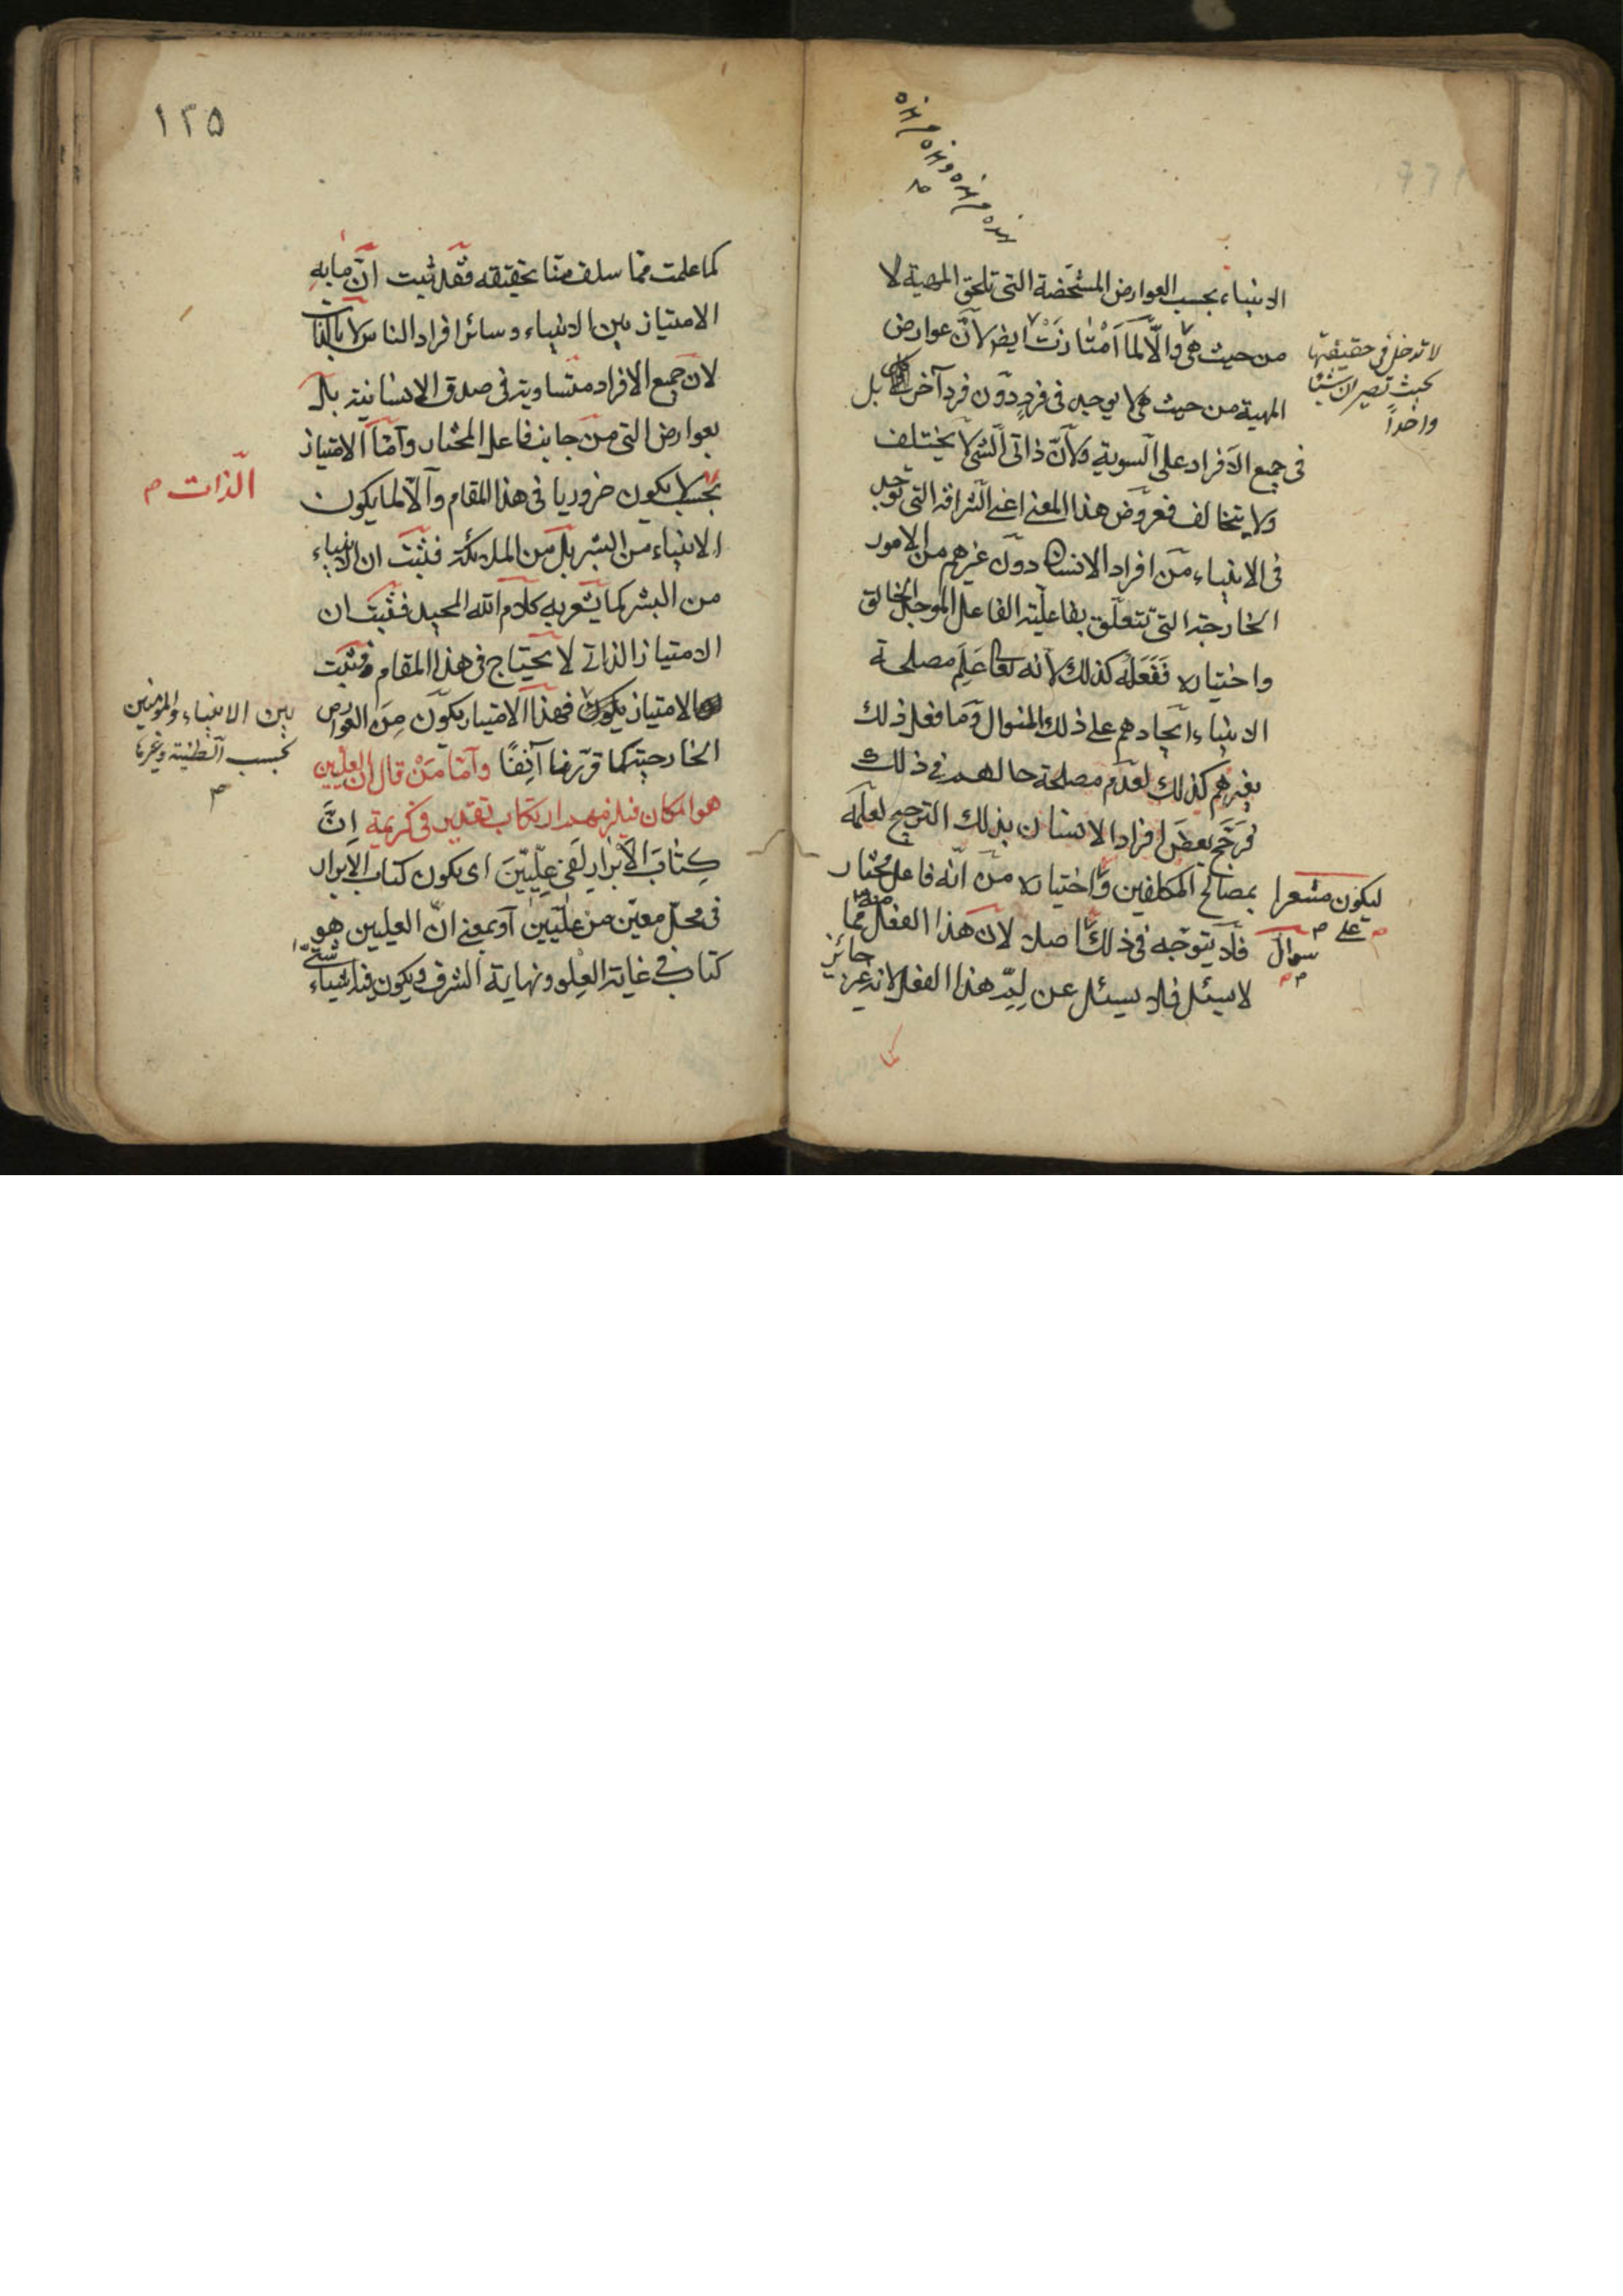 الانبياء بحسب العوارض المشخصة التى تلحق المهية لا
من حيث هى والّا لما امْتازَتْ ايض لانّ عوارض
المهية من حيث هى لا يوجد فى فردٍ دون فرد آخر بل
فى جميع الافراد على السوية ولانّ ذاتى الشئ لا يختلف
ولا يتخالف فعروض هذا المعنى اعنى الشرافة التى توجد
فى الانبياء من افراد الانسان دون غيرهم من الامور
الخارجة التى تتعلّق بفاعليّة الفاعل الموجد الخالق
واختياره فَفَعَلَهُ كذلك لانه تعالى عَلِمَ مصلحة
الانبياء ايجادهم على ذلك المنوال وما فعل ذلك
بغيرهم كذلك لعدم مصلحة حالهم فى ذلك
فرَجَّح بعضَ افراد الانسان بذلك الترجيح لعلمه
بمصالح المكلفين واختياره من انّه فاعل مختار
فلا يتوجّه فى ذلك اصلا لان هذا الفعل منه مما
لا سيئل فلا سيئل عن لِمِّ هذا الفعل لانه غير جائز
لا تدخل فى حقيقتها
بحيث تصيران شيئا
واحداً
ليكون مشعرا
على م
سوال م
كما
١٢٥
كما علمت مما سلف منا تحقيقه فقد ثبت انّ ما به
الامتياز بين الانبياء وسائر افراد الناس لا بالذات
لان جميع الافراد متساوية فى صدق الانسانية بل
بعوارض التى من جانب فاعل المختار وامّا الامتياز
بحسب لا يكون ضروريا فى هذا المقام والّا لما يكون
الانبياء من البشر بل من الملائكة فثبت ان الانبياء
من البشر كما يشعر به كلام الله المجيد فثبت ان
الامتياز الذاتى لا يحتاج فى هذا المقام فثبت
الامتياز يكون فهذا الامتياز يكون مِن العوارض
الخارجية كما قرّرنا آنِفًا وامّا مَنْ قال ان العليين
هو المكان فيلزمهم ارتكاب تقدير فى كريمة اِنَّ
كِتٰابَ الْاَبْرٰارِ لَفى عِلِّيّينَ اى يكون كتاب الابرار
فى محلّ معيّن من علّيين او بمعنى انّ العليين هو
كتاب فى غاية العِلو ونهاية الشرف ويكون فيه اشياء شتّى
الذات م
بين الانبياء والمؤمنين
بحسب الطينة وغيرها
م